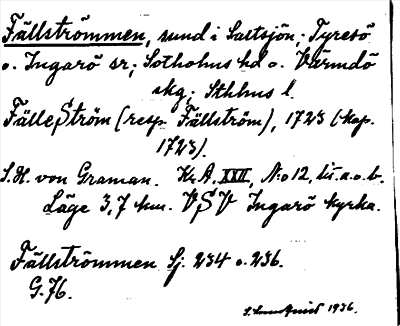 Fällströmmen, sund i Saltsjön; Tyresö
o. Ingarö sr; Sotholms hd o. Värmdö
skg; Sthlms l.
FälleStröm (resp. Fällström), 1723 (kop.
1723).
S.H. von Graman. Kr.A. XXII, No 12, lit. a.o.b.
Läge 3,7 km. VSV Ingarö kyrka.
Fällströmmen Sj. 234 o. 236.
G. 76.
1936.